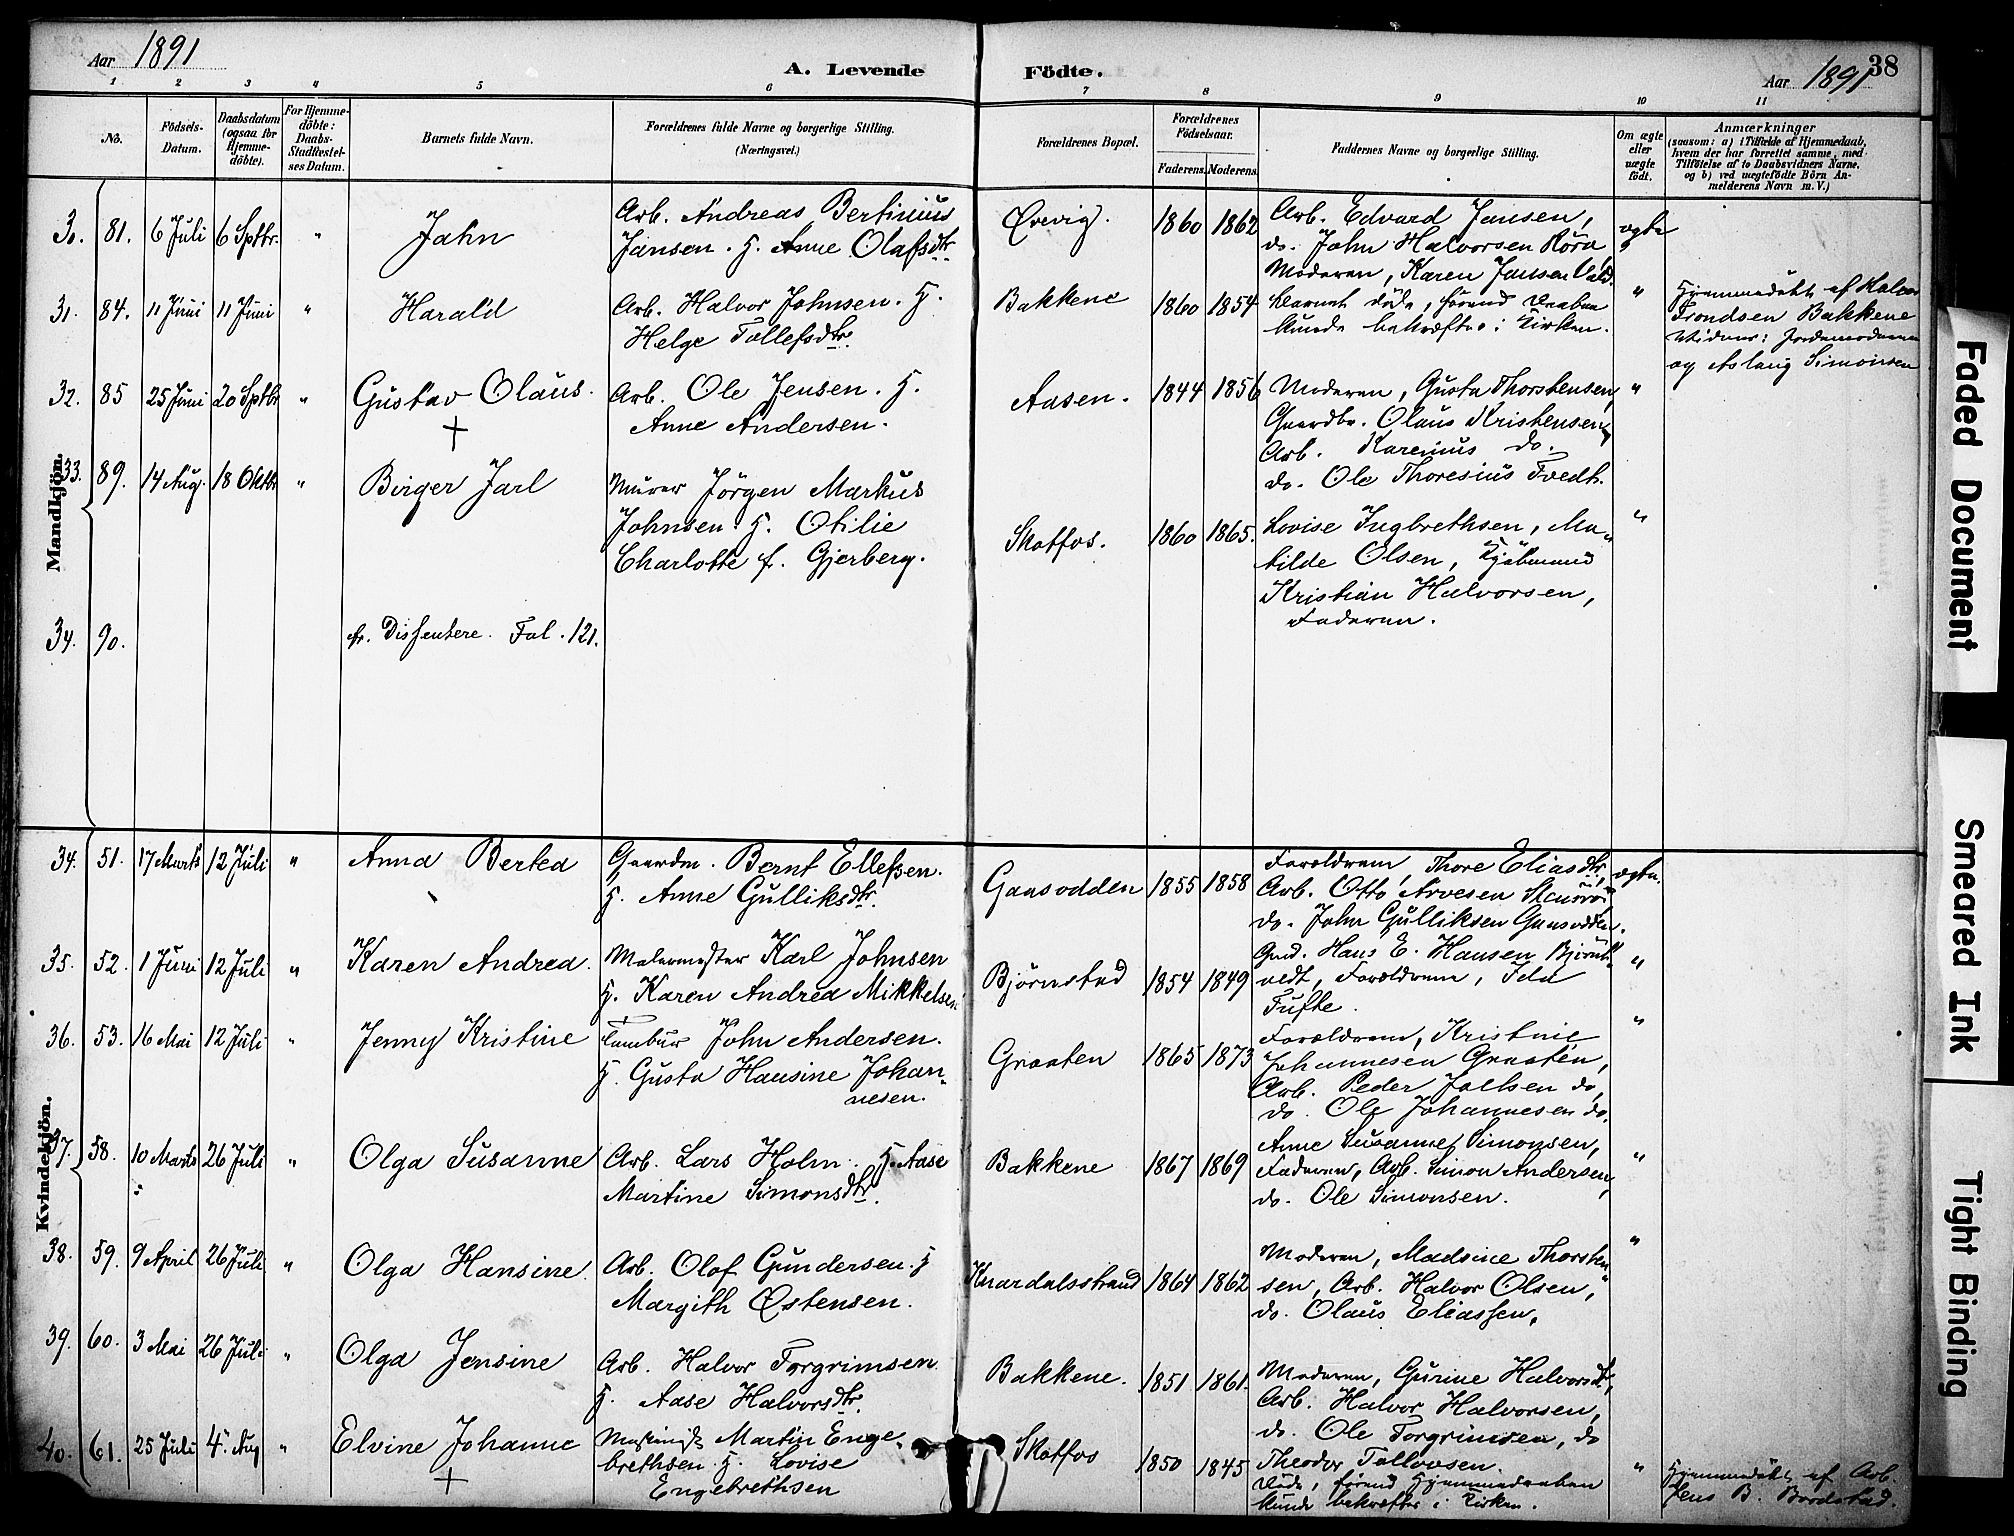 Aar 1891
A. Levende Födte.
Aar 1891
38
1 2 3 4 5 6 7 8 9 10 11
No.
Födsels-Datum.
Daabsdatum (ogsaa for Hjemme-döbte).
For Hjemme-döbte: Daabs-Stadfæstel-ses Datum.
Barnets fulde Navn.
Forældrenes fulde Navne og borgerlige Stilling.
(Næringsvei.)
Forældrenes Bopæl.
Forældrenes Födselsaar.
Faderens. Moderens.
Faddernes Navne og borgerlige Stilling.
Om ægte eller uægte födt.
Anmærkninger
(saasom: a) i Tilfælde af Hjemmedaab, hvem der har forrettet samme, med Tilföielse af to Daabsvidners Navne, og b) ved uægtefödte Börn An-melderens Navn m. V.)
Mandkjön.
30. 81. 6 Juli 6 Sptbr. " Jahn
Arb. Andreas Bertinius
Jansen. H. Anne Olafsdtr.
Örevig. 1860 1862
Arb. Edvard Jansen,
do. John Halvorsen Röra
Moderen, Karen Jansen
ægte
31. 84. 11 Juni 11 Juni " Harald
Arb. Halvor Johnsen. H.
Helge Tollefsdtr.
Bakkene 1860 1854
Barnet döde, förend Daaben
kunde bekræftes i Kirken.
"
Hjemmedöbt af Halvor
Trondsen Bakkene
Vidner: Jordemoderen
og Aslaug Simonsen
32. 85 25 Juni 20 Sptbr " Gustav Olaus.
+
Arb. Ole Jensen. H.
Anne Andersen.
Aasen. 1844 1856
Moderen, Gusta Thorstensen,
Gaardbr. Olaus Kristensen,
Arb. Karenius do.
do. Ole Thoresius Tvedt.
"
33. 89. 14 Aug. 18 Oktbr " Birger Jarl
Murer Jörgen Markus
Johnsen. H. Otilie
Charlotte f. Gjerberg.
Skotfos. 1860 1865.
Lovise Ingbrethsen, Ma-
tilde Olsen, Kjöbmand
Kristian Halvorsen,
Faderen.
"
34. 90.
fr. Dissentere. Fol. 121.
Kvindekjön.
34. 51. 17 Marts 12 Juli " Anna Bertea
Gaardm. Bernt Ellefsen.
H. Anne Gulliksdtr.
Gaasodden 1855 1858
Forældrene, Thore Eliasdtr,
Arb. Otto Arvesen
do. John Gulliksen Gaasodden.
ægte.
35. 52. 1 Juni 12 Juli " Karen Andrea.
Malermester Karl Johnsen
H. Karen Andrea Mikkelsen
Björnstad 1854 1849
Gmd. Hans E. Hansen Björnt-
vedt, Forældrene, Ida
Tufte.
"
36. 53. 16 Mai 12 Juli " Jenny Kristine
Tambur John Andersen.
H. Gusta Hansine Johan-
nesen.
Graaten 1865 1873
Forældrene, Kristine
Johannesen Graaten,
Arb. Peder Joelsen do,
do. Ole Johannesen do.
"
37. 58. 10 Marts 26 Juli " Olga Susanne
Arb. Lars Holm. H. Aase
Martine Simonsdtr.
Bakkene 1867 1869
Anne Susanne Simonsen,
Faderen, Arb. Simon Andersen,
do. Ole Simonsen.
"
38. 59. 9 April 26 Juli " Olga Hansine
Arb. Olof Gundersen. H
Margith Östensen.
Knardalsstrand 1864 1862
Moderen, Madsine Thorsten-
sen, Arb. Halvor Olsen,
do. Olaus Eliassen.
"
39. 60. 3 Mai 26 Juli " Olga Jensine
Arb. Halvor Torgrimsen
H. Aase Halvorsdtr.
Bakkene. 1851 1861.
Moderen, Gurine Halvorsdt,
Arb. Halvor Halvorsen,
do. Ole Torgrimsen, do
Theodor Tollovsen.
40. 61. 25 Juli 4 Aug " Elvine Johanne
+
Maskinist Martin Enge-
brethsen. H. Lovise
Engebrethsen
Skotfos 1850 1845
Döde, förend Hjemmedaaben
kunde bekræftes i Kirken.
"
Hjemmedöbt af Arb.
Jens B. Bordstad.
Faded Document
Smeared Ink
Tight Binding